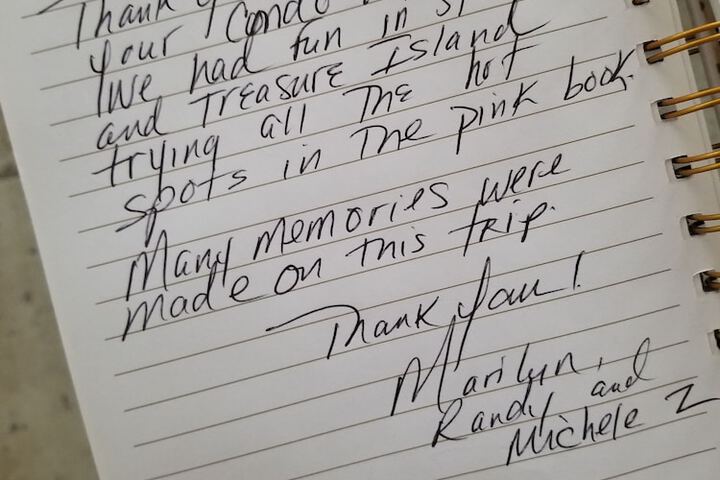 Thank
your Condo
We had fun in
and Treasure Island
trying all the hot
spots in the pink book.
Many memories were
made on this trip.
Thank You!
Marilyn,
Randy and
Michele Z